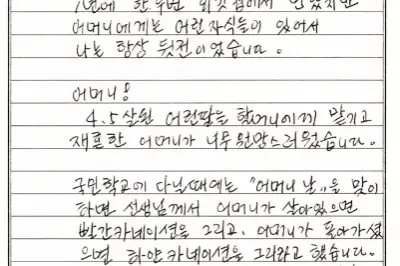 1년에 한두번 외갓집에서 만났지만
어머니에게는 어린자식들이 있어서
나는 항상 뒷전이었습니다.
어머니!
4.5살된 어린딸을 할머니에게 맡기고
재혼한 어머니가 너무 원망스러웠습니다.
국민학교에 다닐때에는 "어머니 날"을 맞이
하면 선생님께서 어머니가 살아있으면
빨간카네이션을 그리고, 어머니가 돌아가셨
으면 하얀카네이션을 그리라고 했습니다.